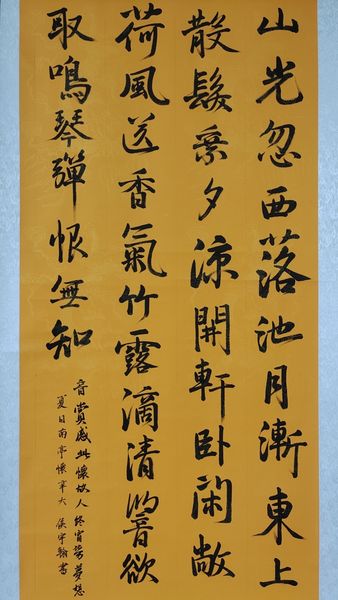 山光忽西落池月漸東上
散髮乘夕涼開軒卧閑敞
荷風送香氣竹露滴清響欲
取鳴琴彈恨無知
音賞感此懷故人終宵勞夢想
夏日南亭懷辛大 侯宇翰書